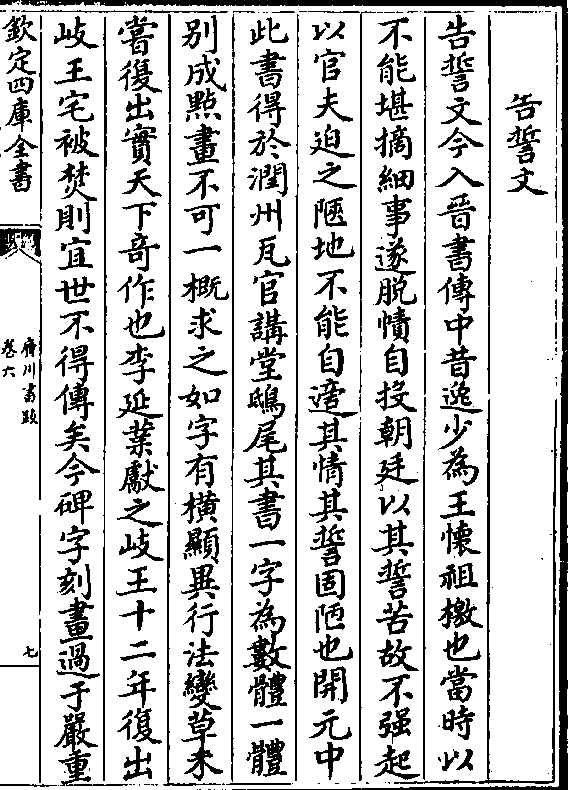 告誓文
告誓文今入晉書傳中昔逸少為王懷祖檄也當時以
不能堪摘細事遂脫幘自投朝廷以其誓苦故不强起
以官夫迫之陋地不能自適其情其誓固陋也開元中
此書得於潤州瓦官講堂鴟尾其書一字為數體一體
别成㸃畫不可一概求之如字有横顯異行法變草未
嘗復出實天下竒作也李延業獻之岐王十二年復出
岐王宅被焚則宜世不得傳矣今碑字刻畫過于嚴重
欽定四庫全書
廣川書跋
卷六
七